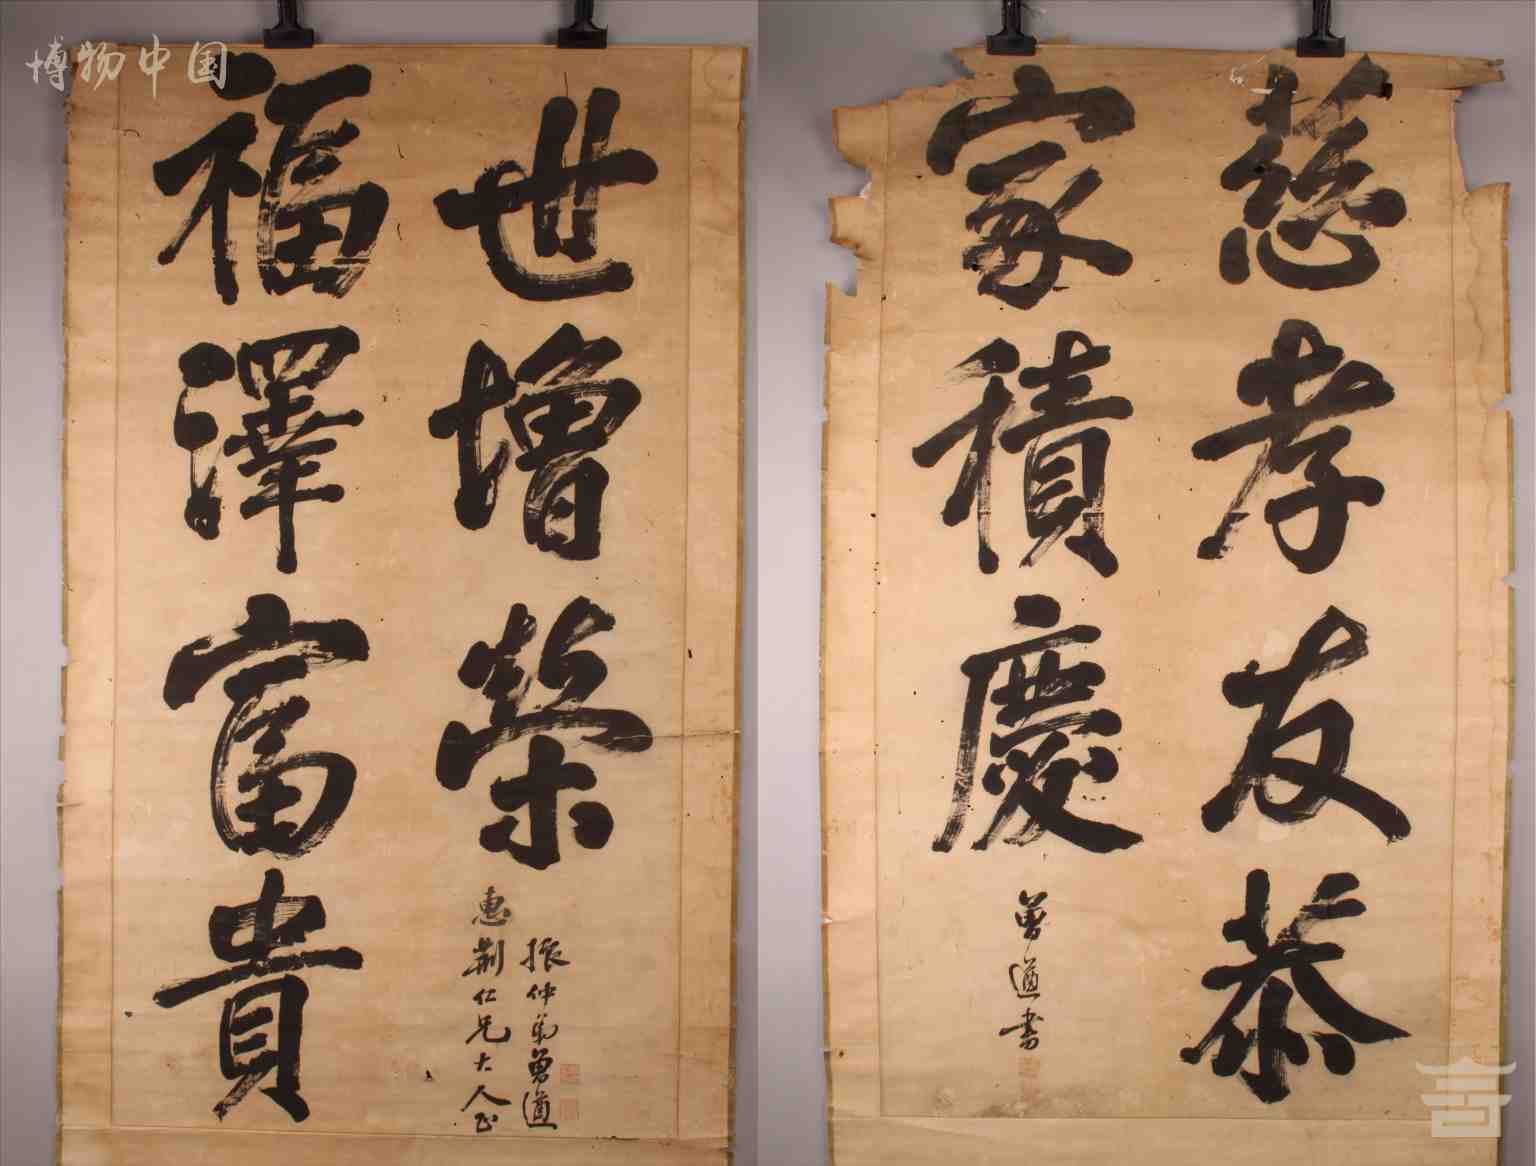 博物中国
慈孝友恭
家積慶
曾遒書
福澤富貴
世增榮
惠荆仁兄大人正
振仲弟曾遒